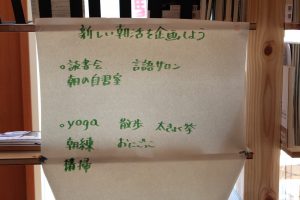 新しい朝活を企画しよう
○読書会 言語サロン
朝の自習室
○yoga 散歩 太きょく拳
朝練 おにごっこ
清掃